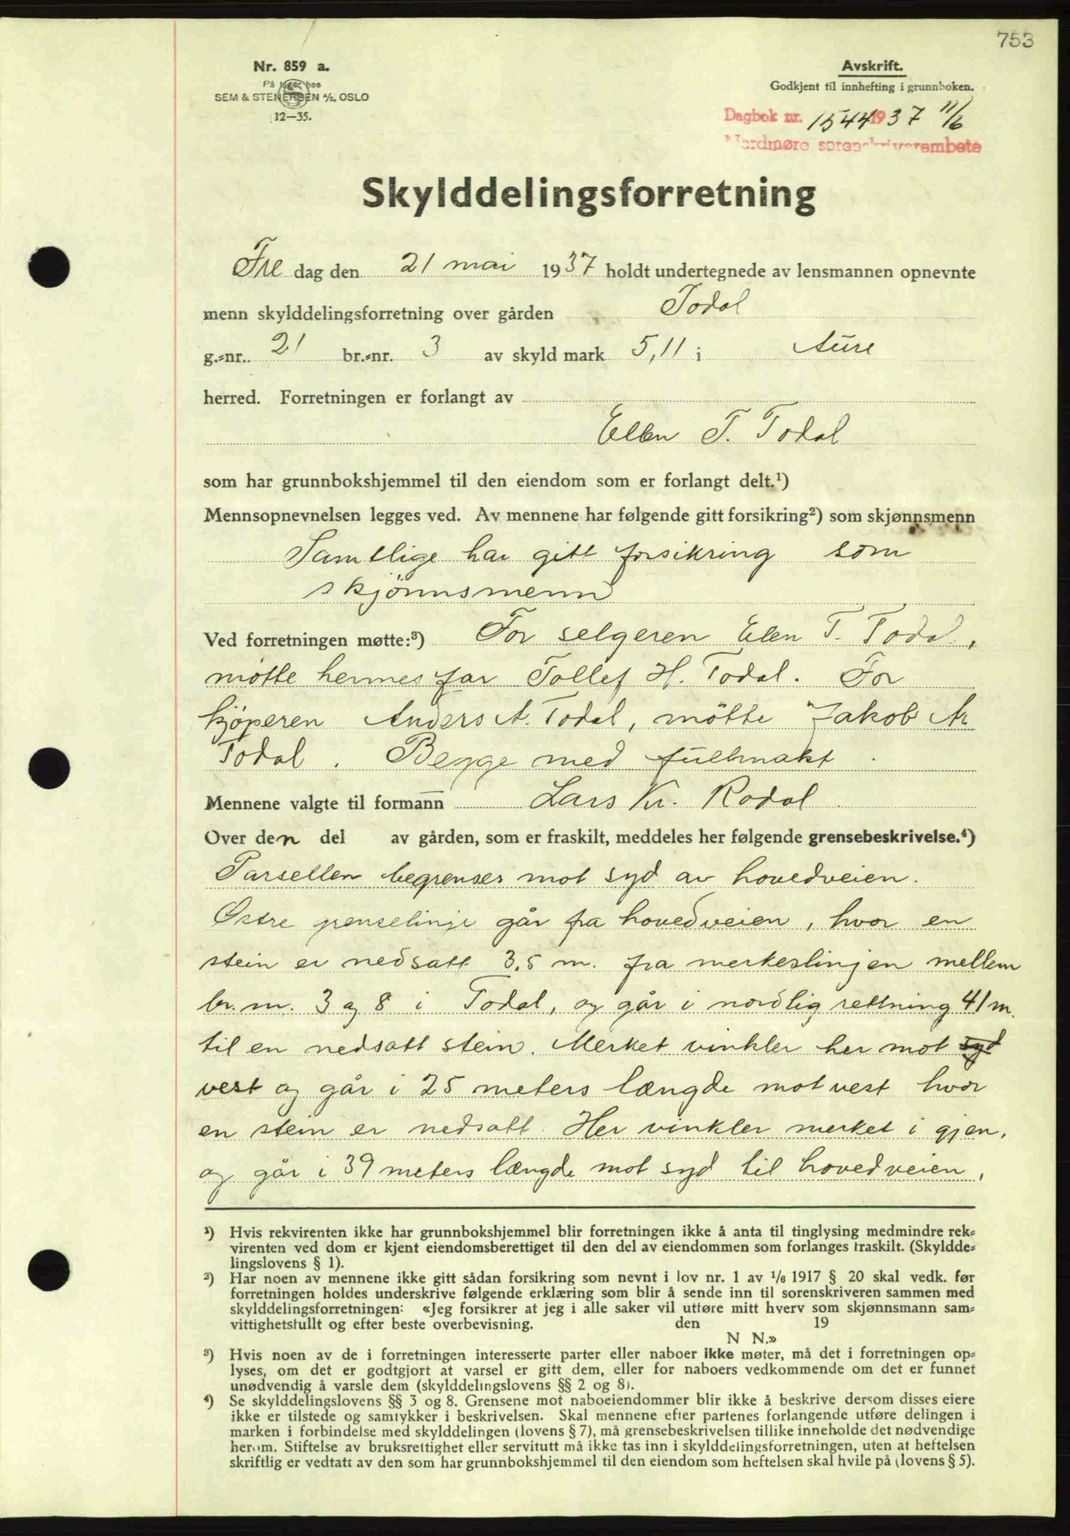 753
Nr. 859 a.
På lager hos
SEM & STENERSEN A/S, OSLO
12—35.
Avskrift.
Godkjent til innhefting i grunnboken.
Dagbok nr. 1544 1937 11/6
Nordmøre sorenskriverembete
Skylddelingsforretning
Fre dag den 21 mai 1937 holdt undertegnede av lensmannen opnevnte
menn skylddelingsforretning over gården Todal
g.-nr.. 21 br.-nr. 3 av skyld mark 5,11 i Aure
herred. Forretningen er forlangt av
Ellen T. Todal
som har grunnbokshjemmel til den eiendom som er forlangt delt.¹)
Mennsopnevnelsen legges ved. Av mennene har følgende gitt forsikring²) som skjønnsmenn
Samtlige har gitt forsikring som
skjönnsmenn
Ved forretningen møtte:³) For selgeren Elen T. Todal,
mötte hennes far Tollef H. Todal. For
kjöperen Anders A. Todal, mötte Jakob Ar
Todal. Begge med fullmakt.
Mennene valgte til formann Lars Kr. Rodal.
Over den del av gården, som er fraskilt, meddeles her følgende grensebeskrivelse.⁴)
Parsellen begrenses mot syd av hovedveien.
Østre grenselinje går fra hovedveien, hvor en
stein er nedsatt 3,5 m. fra merkeslinjen mellem
br.nr. 3 og 8 i Todal, og går i nordlig rettning 41 m.
til en nedsatt stein. Merket vinkler her mot syd
vest og går i 25 meters længde mot vest hvor
en stein er nedsatt. Her vinkler merket i gjen,
og går i 39 meters længde mot syd til hovedveien,
¹) Hvis rekvirenten ikke har grunnbokshjemmel blir forretningen ikke å anta til tinglysing medmindre rek-
virenten ved dom er kjent eiendomsberettiget til den del av eiendommen som forlanges fraskilt. (Skyldde-
lingslovens § 1).
²) Har noen av mennene ikke gitt sådan forsikring som nevnt i lov nr. 1 av 1/6 1917 § 20 skal vedk. før
forretningen holdes underskrive følgende erklæring som blir å sende inn til sorenskriveren sammen med
skylddelingsforretningen: «Jeg forsikrer at jeg i alle saker vil utføre mitt hverv som skjønnsmann sam-
vittighetsfullt og efter beste overbevisning. den 19
N N.»
³) Hvis noen av de i forretningen interesserte parter eller naboer ikke møter, må det i forretningen op-
lyses, om det er godtgjort at varsel er gitt dem, eller for naboers vedkommende om det er funnet
unødvendig å varsle dem (skylddelingslovens §§ 2 og 8).
⁴) Se skylddelingslovens §§ 3 og 8. Grensene mot naboeiendommer blir ikke å beskrive dersom disses eiere
ikke er tilstede og samtykker i beskrivelsen. Skal mennene efter partenes forlangende utføre delingen i
marken i forbindelse med skylddelingen (lovens § 7), må grensebeskrivelsen tillike inneholde det nødvendige
herom. Stiftelse av bruksrettighet eller servitutt må ikke tas inn i skylddelingsforretningen, uten at heftelsen
skriftlig er vedtatt av den som har grunnbokshjemmel til den eiendom som heftelsen skal hvile på (lovens § 5).